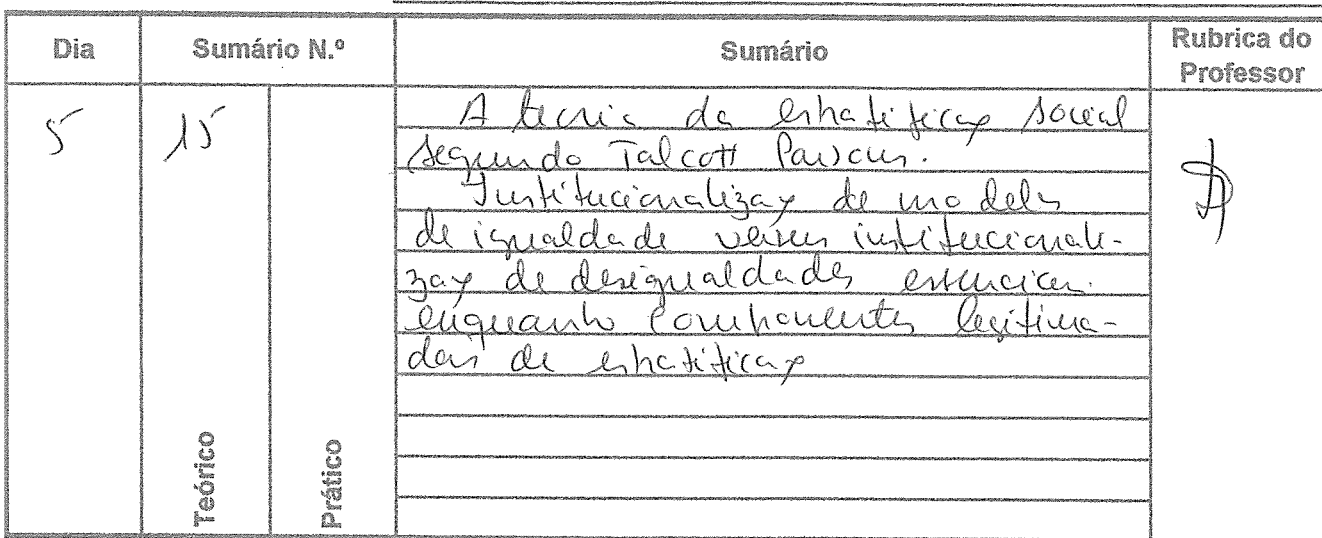 Dia
Sumário N.º
Sumário
Rubrica do
Professor
5
15
A teoria da estratificação social
segundo Talcott Parsons.
Institucionalização de modelos
de igualdade versus institucionali-
zação de desigualdades
enquanto componentes legitima-
dores de estratificação
Teórico
Prático